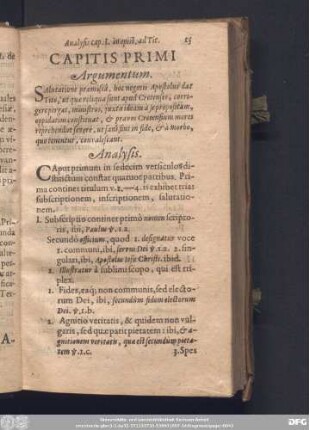 Analysis cap. I. in epist. ad Tit. 25
CAPITIS PRIMI
Argumentum.
Salutatione præmissâ, hoc negotii Apostolus dat
Tito, ut quæ reliqua sunt apud Cretenses, corri-
gere pergat, ministros, juxta ideam à se præscriptam,
oppidatim constituat, & pravos Cretensium mores
reprehendat severè, ut sani sint in fide, & à morbo,
quo tenentur, convalescant.
Analysis.
CAput primum in sedecim versiculos di-
stinctum constat quatuor partibus. Pri-
ma continet titulum v. 1.—4. is exhibet trias
subscriptionem, inscriptionem, salutatio-
nem.
I. Subscriptio continet primò nomen scripto-
ris, ibi, Paulus ψ. 1.
Secundò officium, quod 1. designatur voce
1. communi, ibi, servus Dei ψ. 1. 2. sin-
gulari, ibi, Apostolus Jesu Christi. ibid.
2. Illustratur à sublimi scopo, qui est tri-
plex.
1. Fides, eaq; non communis, sed electo-
rum Dei, ibi, secundùm fidem electorum
Dei, ψ. 1. b.
2. Agnitio veritatis, & quidem non vul-
garis, sed quæ parit pietatem: ibi, & a-
gnitionem veritatis, quæ est secundùm pieta-
tem ψ. 1. c. 3. Spes